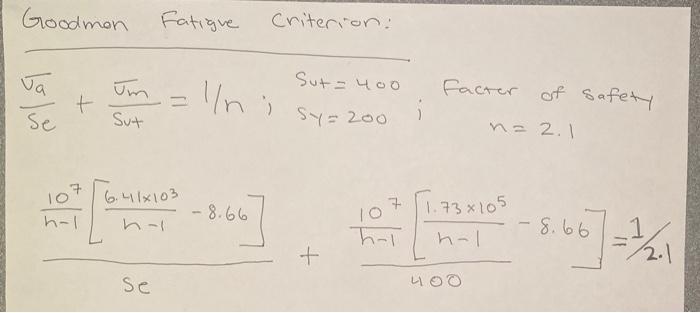 Goodman Fatigue Criterion:
σa/Se + σm/Sut = 1/n ; Sut = 400 ; Factor of Safety
Sy = 200
n = 2.1
10^7/(h-1) [6.41×10^3/(h-1) - 8.66] / Se + 10^7/(h-1) [1.73×10^5/(h-1) - 8.66] / 400 = 1/2.1